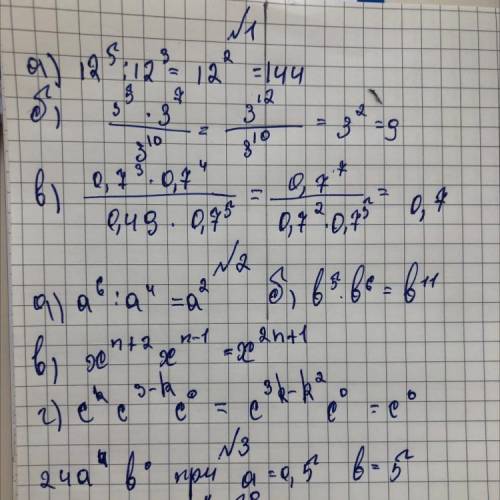 №1
а) 12⁵ : 12³ = 12² = 144
б) (3⁵ · 3⁷)/3¹⁰ = 3¹²/3¹⁰ = 3² = 9
в) (0,7³ · 0,7⁴)/(0,49 · 0,7⁵) = 0,7⁷/(0,7² · 0,7⁵) = 0,7
№2
а) a⁶ : a⁴ = a² б) b⁵ · b⁶ = b¹¹
в) xⁿ⁺² xⁿ⁻¹ = x²ⁿ⁺¹
г) cᵏ c³⁻ᵏ c⁰ = c³ᵏ⁻ᵏ² c⁰ = c⁰
№3
24a⁴ b⁰ при a = 0,5 b = 5